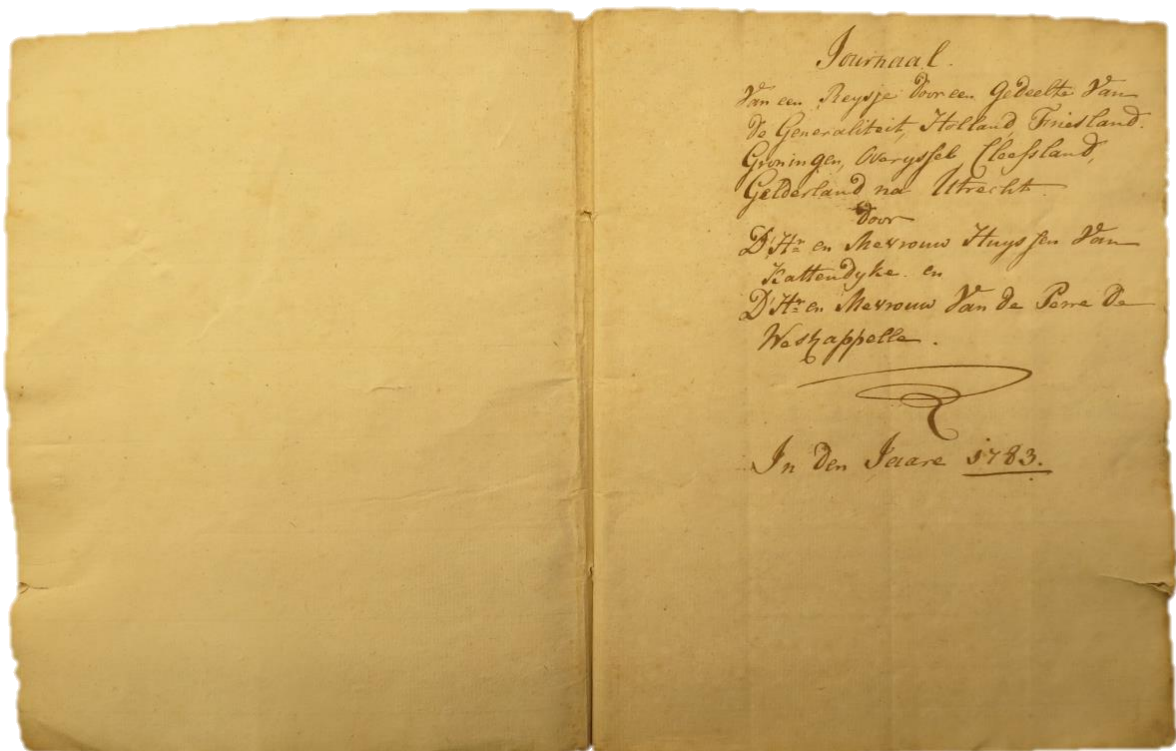 Journaal.
Van een Reysje door een Gedeelte Van
de Generaliteit, Holland, Friesland.
Groningen, Overyssel, Cleefsland,
Gelderland na Utrecht.
door
D'Hr. en Mevrouw Huyssen Van
Kattendyke. en
D'Hr. en Mevrouw Van de Perre De
Weskappelle.
In den Jaare 1783.